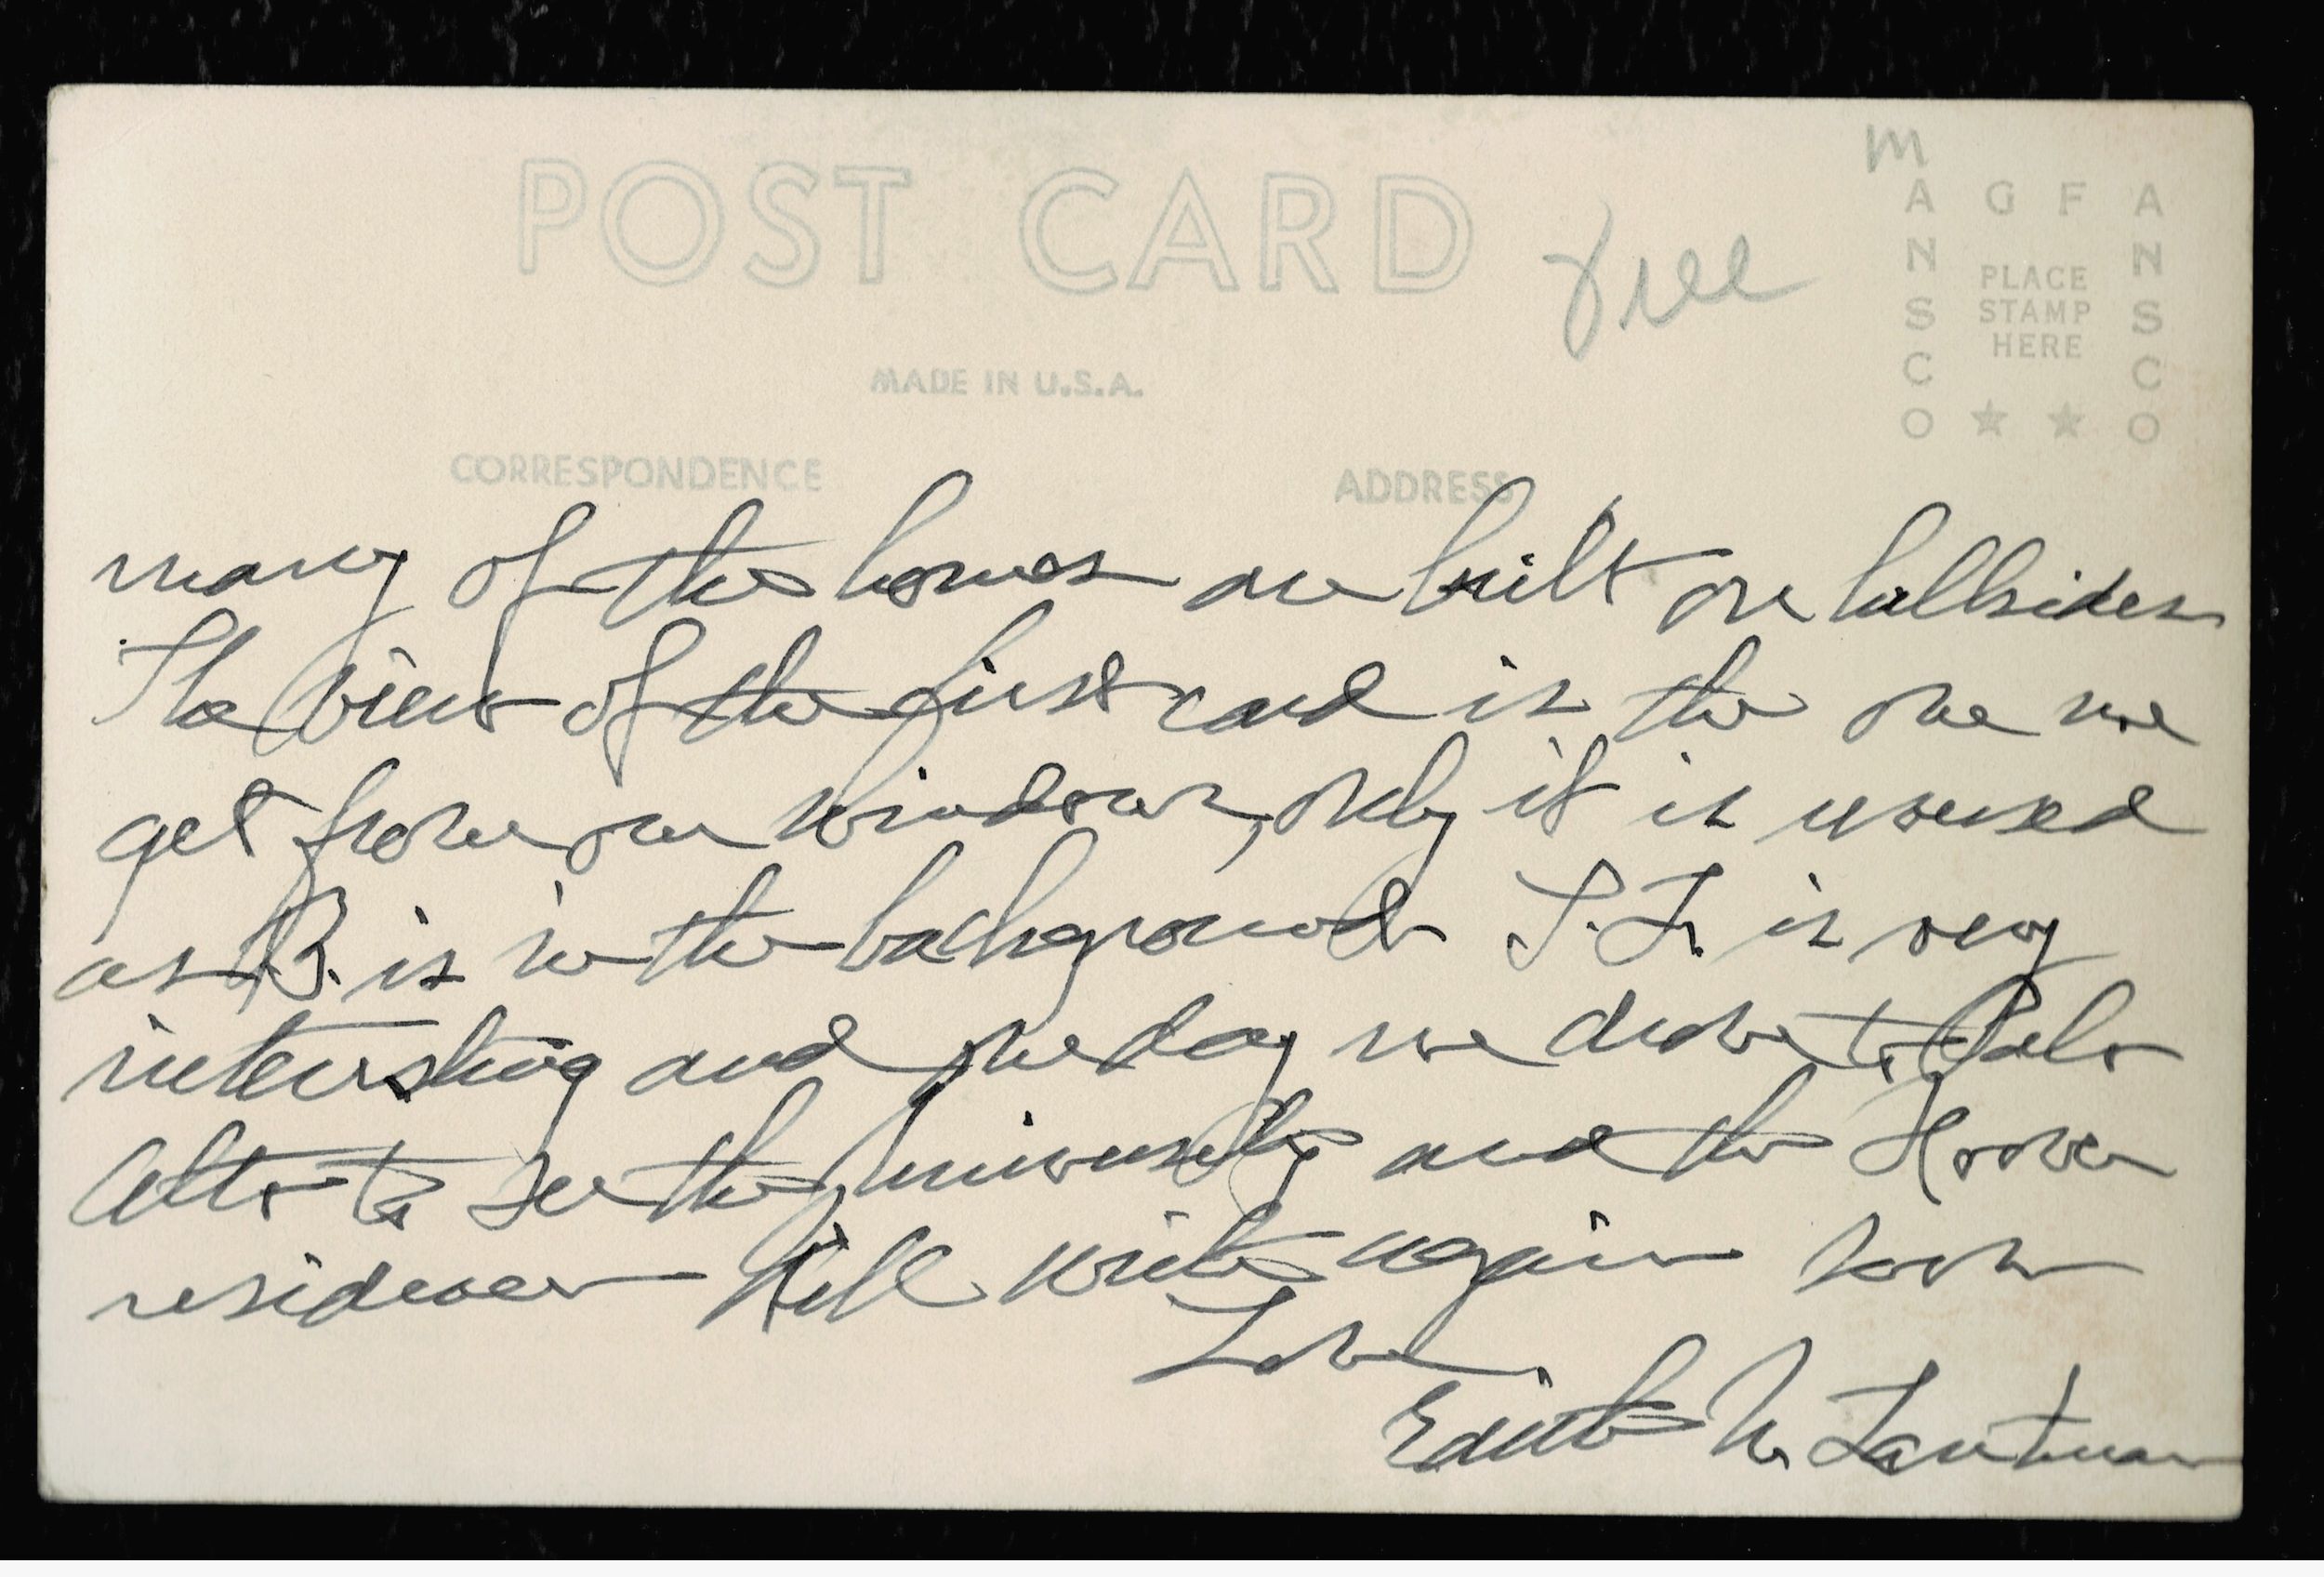 POST CARD
free
M
AGFA ANSCO
PLACE STAMP HERE
ANSCO
MADE IN U.S.A.
CORRESPONDENCE
ADDRESS
many of the homes are built on hillsides
The view of the first card is the one we
get from our windows, only it is
as B. is in the background S.F. is very
interesting and one day we drove to Palo
Alto to see the University and the Hoover
residence Will write again soon
Love
Edith